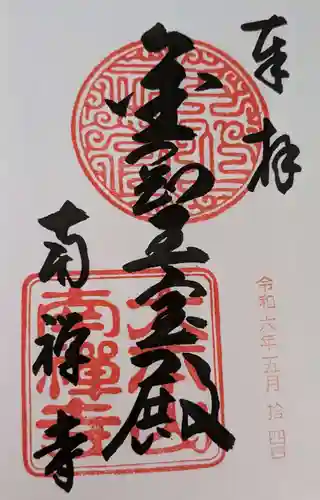 奉拝
金剛王宝殿
南禅寺
令和六年五月拾四日
南禪寺